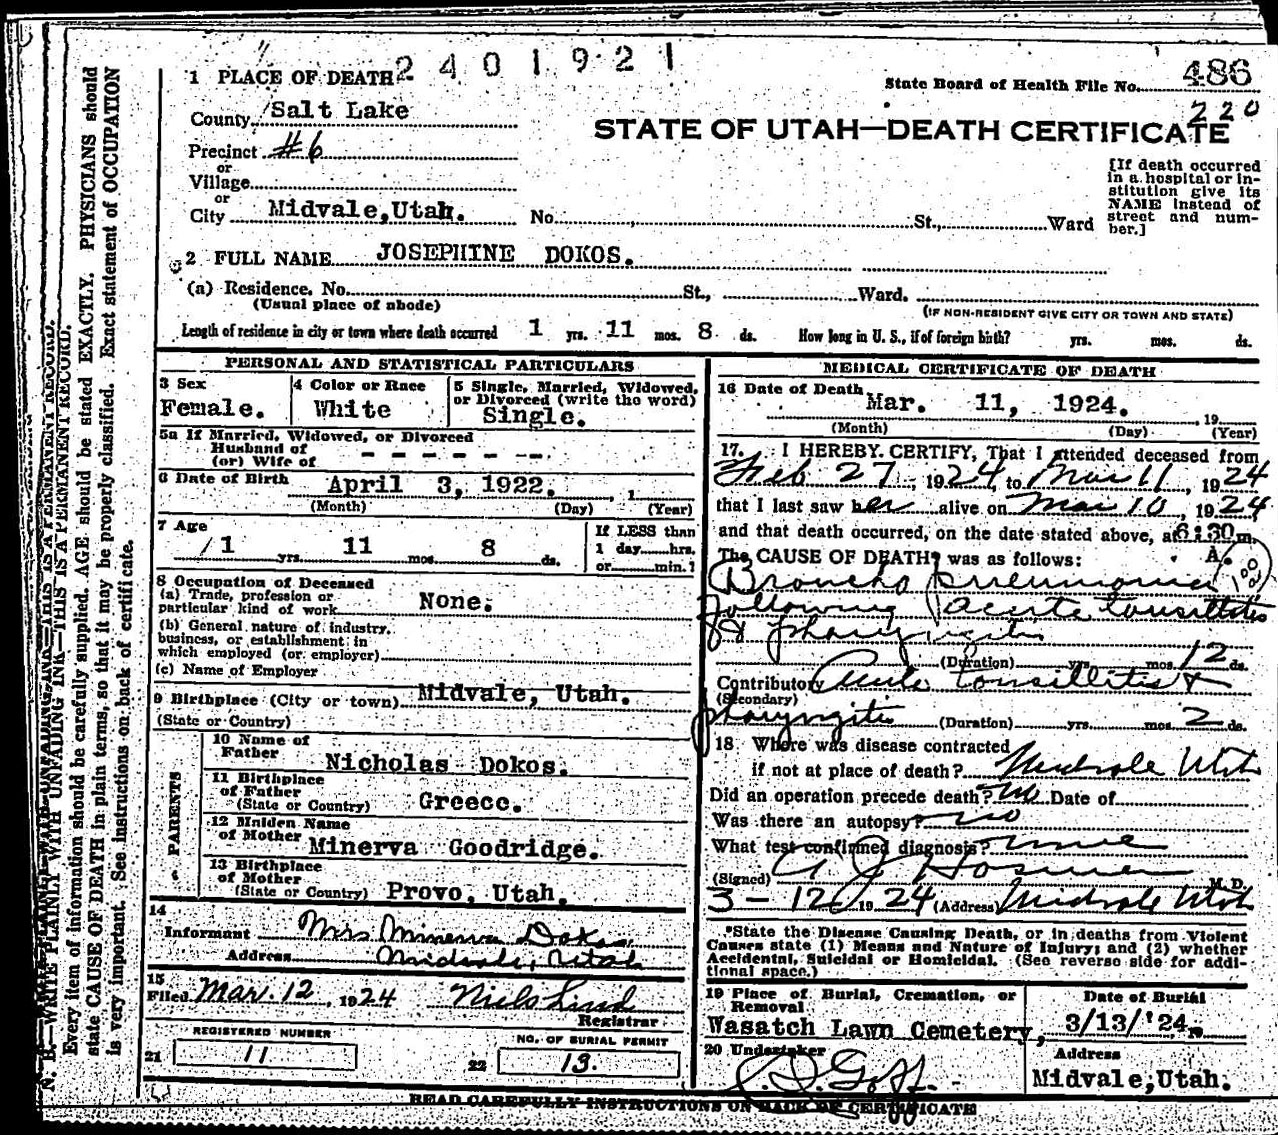 2401921
State Board of Health File No. 486
220
STATE OF UTAH—DEATH CERTIFICATE
1 PLACE OF DEATH
County Salt Lake
Precinct #6
or
Village
or
City Midvale, Utah. No. St., Ward
[If death occurred
in a hospital or in-
stitution give its
NAME instead of
street and num-
ber.]
2 FULL NAME JOSEPHINE DOKOS.
(a) Residence. No. St., Ward.
(Usual place of abode) (IF NON-RESIDENT GIVE CITY OR TOWN AND STATE)
Length of residence in city or town where death occurred 1 yrs. 11 mos. 8 ds. How long in U. S., if of foreign birth? yrs. mos. ds.
PERSONAL AND STATISTICAL PARTICULARS
3 Sex
Female.
4 Color or Race
White
5 Single, Married, Widowed,
or Divorced (write the word)
Single.
5a If Married, Widowed, or Divorced
Husband of
(or) Wife of
6 Date of Birth April 3, 1922. , 1
(Month) (Day) (Year)
7 Age
1 yrs. 11 mos. 8 ds.
If LESS than
1 day hrs.
or min.?
8 Occupation of Deceased
(a) Trade, profession or
particular kind of work None.
(b) General nature of industry,
business, or establishment in
which employed (or employer)
(c) Name of Employer
9 Birthplace (City or town) Midvale, Utah.
(State or Country)
PARENTS
10 Name of
Father Nicholas Dokos.
11 Birthplace
of Father
(State or Country) Greece.
12 Maiden Name
of Mother Minerva Goodridge.
13 Birthplace
of Mother
(State or Country) Provo, Utah.
14
Informant Mrs Minerva Dokos
Address Midvale, Utah
15
Filed Mar. 12, 1924 Niels Lind
Registrar
REGISTERED NUMBER
21 11
NO. OF BURIAL PERMIT
22 13.
MEDICAL CERTIFICATE OF DEATH
16 Date of Death Mar. 11, 1924. , 19
(Month) (Day) (Year)
17. I HEREBY CERTIFY, That I attended deceased from
Feb 27, 1924, to Mar 11, 1924
that I last saw her alive on Mar 10, 1924
and that death occurred, on the date stated above, at 6:30 m.
A.
The CAUSE OF DEATH* was as follows:
Broncho pneumonia
following acute tonsillitis
& pharyngitis
(Duration) yrs. mos. 12 ds.
Contributory Acute tonsillitis &
(Secondary)
pharyngitis (Duration) yrs. mos. 2 ds.
18 Where was disease contracted
if not at place of death? Midvale Utah
Did an operation precede death? No Date of
Was there an autopsy? no
What test confirmed diagnosis? none
(Signed) A J Hosmer M. D.
3-12 1924 (Address) Midvale Utah
*State the Disease Causing Death, or in deaths from Violent
Causes state (1) Means and Nature of Injury; and (2) whether
Accidental, Suicidal or Homicidal. (See reverse side for addi-
tional space.)
19 Place of Burial, Cremation, or
Removal
Wasatch Lawn Cemetery,
Date of Burial
3/13/'24.
20 Undertaker
Goff.
Address
Midvale, Utah.
READ CAREFULLY INSTRUCTIONS ON BACK OF CERTIFICATE
N. B.—WRITE PLAINLY WITH UNFADING INK—THIS IS A PERMANENT RECORD.
Every item of information should be carefully supplied. AGE should be stated EXACTLY. PHYSICIANS should
state CAUSE OF DEATH in plain terms, so that it may be properly classified. Exact statement of OCCUPATION
is very important. See instructions on back of certificate.